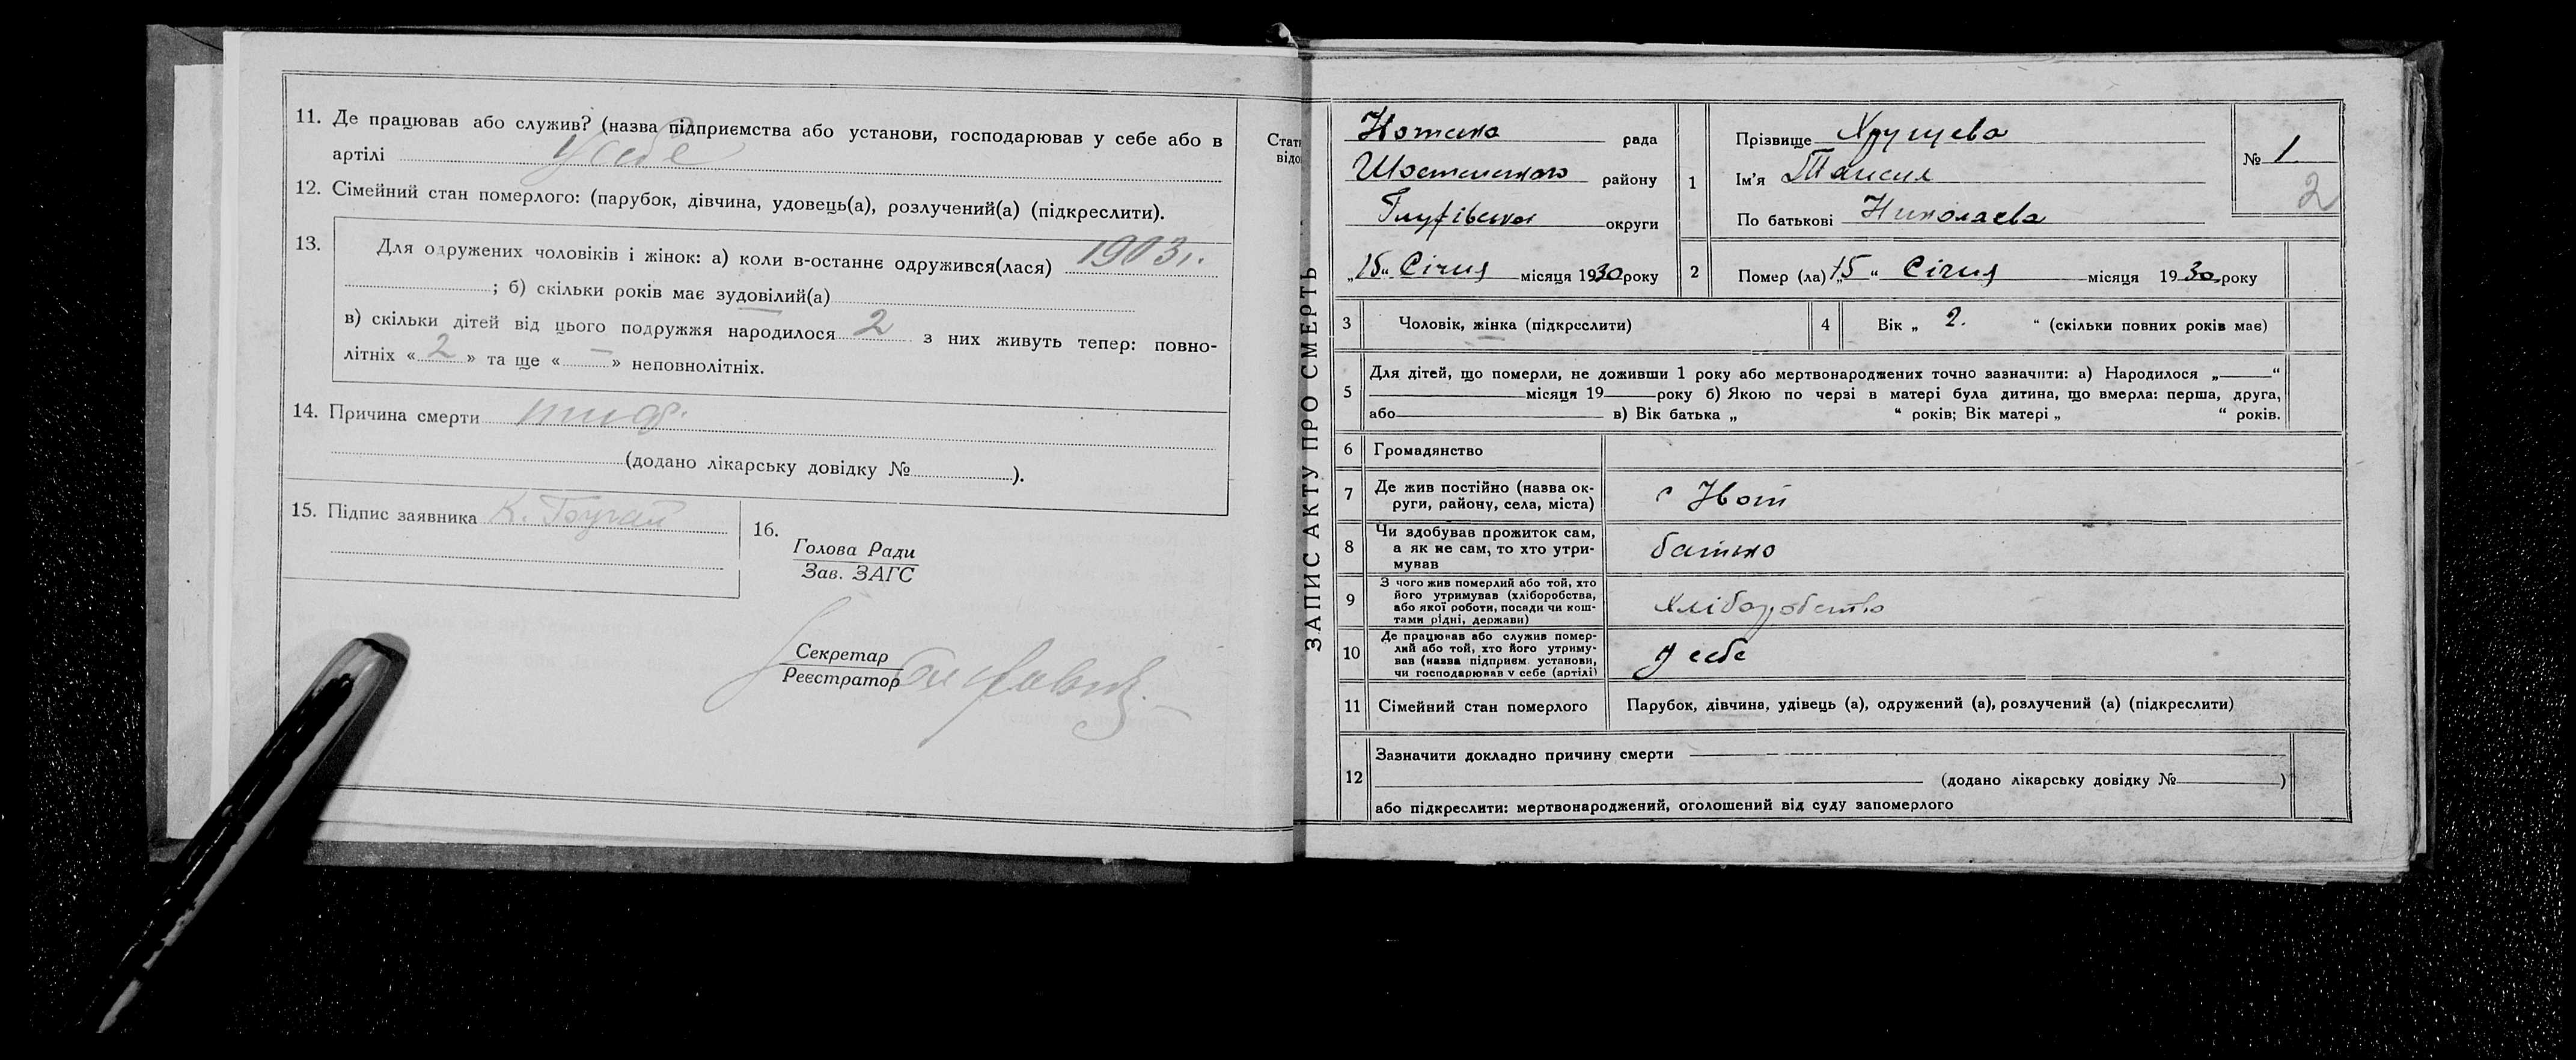 11. Де працював або служив? (назва підприємства або установи, господарював у себе або в
артілі У себе
12. Сімейний стан померлого: (парубок, дівчина, удовець(а), розлучений(а) (підкреслити).
13. Для одружених чоловіків і жінок: а) коли в-останнє одружився(лася) 1903 г.
; б) скільки років має зудовілий(а)
в) скільки дітей від цього подружжя народилося 2 з них живуть тепер: повно-
літніх « 2 » та ще « — » неповнолітніх.
14. Причина смерти тиф.
(додано лікарську довідку № ).
15. Підпис заявника К.
16.
Голова Ради
Зав. ЗАГС
Секретар
Реєстратор
Стат
відо
ЗАПИС АКТУ ПРО СМЕРТЬ
рада
Шостенського району
Глухівської округи
„15“ Січня місяця 1930 року
1
Прізвище Хрущева
Ім'я Таисия
По батькові Николаева
№ 1.
2
2 Помер (ла) „15“ Січня місяця 1930 року
3 Чоловік, жінка (підкреслити)
4 Вік „ 2. “ (скільки повних років має)
5 Для дітей, що померли, не доживши 1 року або мертвонароджених точно зазначити: а) Народилося „—“
місяця 19— року б) Якою по черзі в матері була дитина, що вмерла: перша, друга,
або — в) Вік батька „ “ років; Вік матері „ “ років.
6 Громадянство
7 Де жив постійно (назва ок-
руги, району, села, міста)
с Івот
8 Чи здобував прожиток сам,
а як не сам, то хто утри-
мував
батько
9 З чого жив померлий або той, хто
його утримував (хліборобства,
або якої роботи, посади чи кош-
тами рідні, держави)
Хліборобство
10 Де працював або служив помер-
лий або той, хто його утриму-
вав (назва підприєм. установи,
чи господарював у себе (артілі)
У себе
11 Сімейний стан померлого Парубок, дівчина, удівець (а), одружений (а), розлучений (а) (підкреслити)
12 Зазначити докладно причину смерти
(додано лікарську довідку № )
або підкреслити: мертвонароджений, оголошений від суду запомерлого